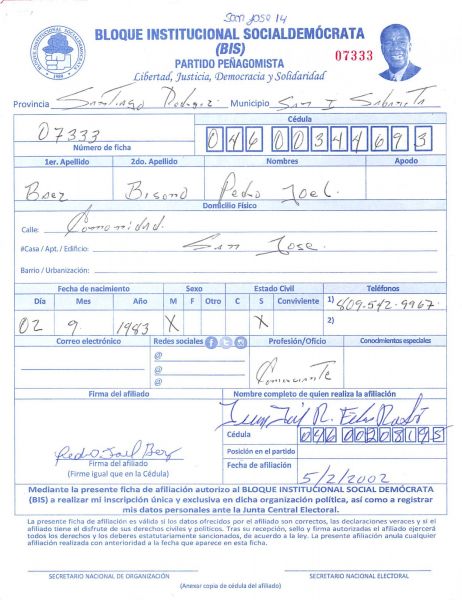 San Jose 14
BLOQUE INSTITUCIONAL SOCIALDEMÓCRATA
(BIS)
PARTIDO PEÑAGOMISTA
07333
Libertad, Justicia, Democracia y Solidaridad
BLOQUE INSTITUCIONAL SOCIALDEMOCRATA
Provincia Santiago Rodogez Municipio San I Sabaneta
07333 Cédula
Número de ficha 046 0034469 3
1er. Apellido 2do. Apellido Nombres Apodo
Baez Bisono Pedro Joel.
Domicilio Físico
Calle: Comonidad.
#Casa / Apt. / Edificio: San Jose.
Barrio / Urbanización:
Fecha de nacimiento Sexo Estado Civil Teléfonos
Día Mes Año M F Otro C S Conviviente 1) 809-542-9967
02 9 1983 X X 2)
Correo electrónico Redes sociales Profesión/Oficio Conocimientos especiales
@
@ Comerciante
@
Firma del afiliado Nombre completo de quien realiza la afiliación
Cédula 046 0020819 5
Pedro Joel Baez
Firma del afiliado
(Firme igual que en la Cédula)
Posición en el partido
Fecha de afiliación 5/2/2002
Mediante la presente ficha de afiliación autorizo al BLOQUE INSTITUCIONAL SOCIAL DEMÓCRATA
(BIS) a realizar mi inscripción única y exclusiva en dicha organización política, así como a registrar
mis datos personales ante la Junta Central Electoral.
La presente ficha de afiliación es válida si los datos ofrecidos por el afiliado son correctos, las declaraciones veraces y si el
afiliado tiene el disfrute de sus derechos civiles y políticos. Tras su recepción, sello y firma autorizadas el afiliado ejercerá
todos los derechos y los deberes estatutariamente sancionados, de acuerdo a la ley. La presente afiliación anula cualquier
afiliación realizada con anterioridad a la fecha que aparece en esta ficha.
SECRETARIO NACIONAL DE ORGANIZACIÓN SECRETARIO NACIONAL ELECTORAL
(Anexar copia de cédula del afiliado)